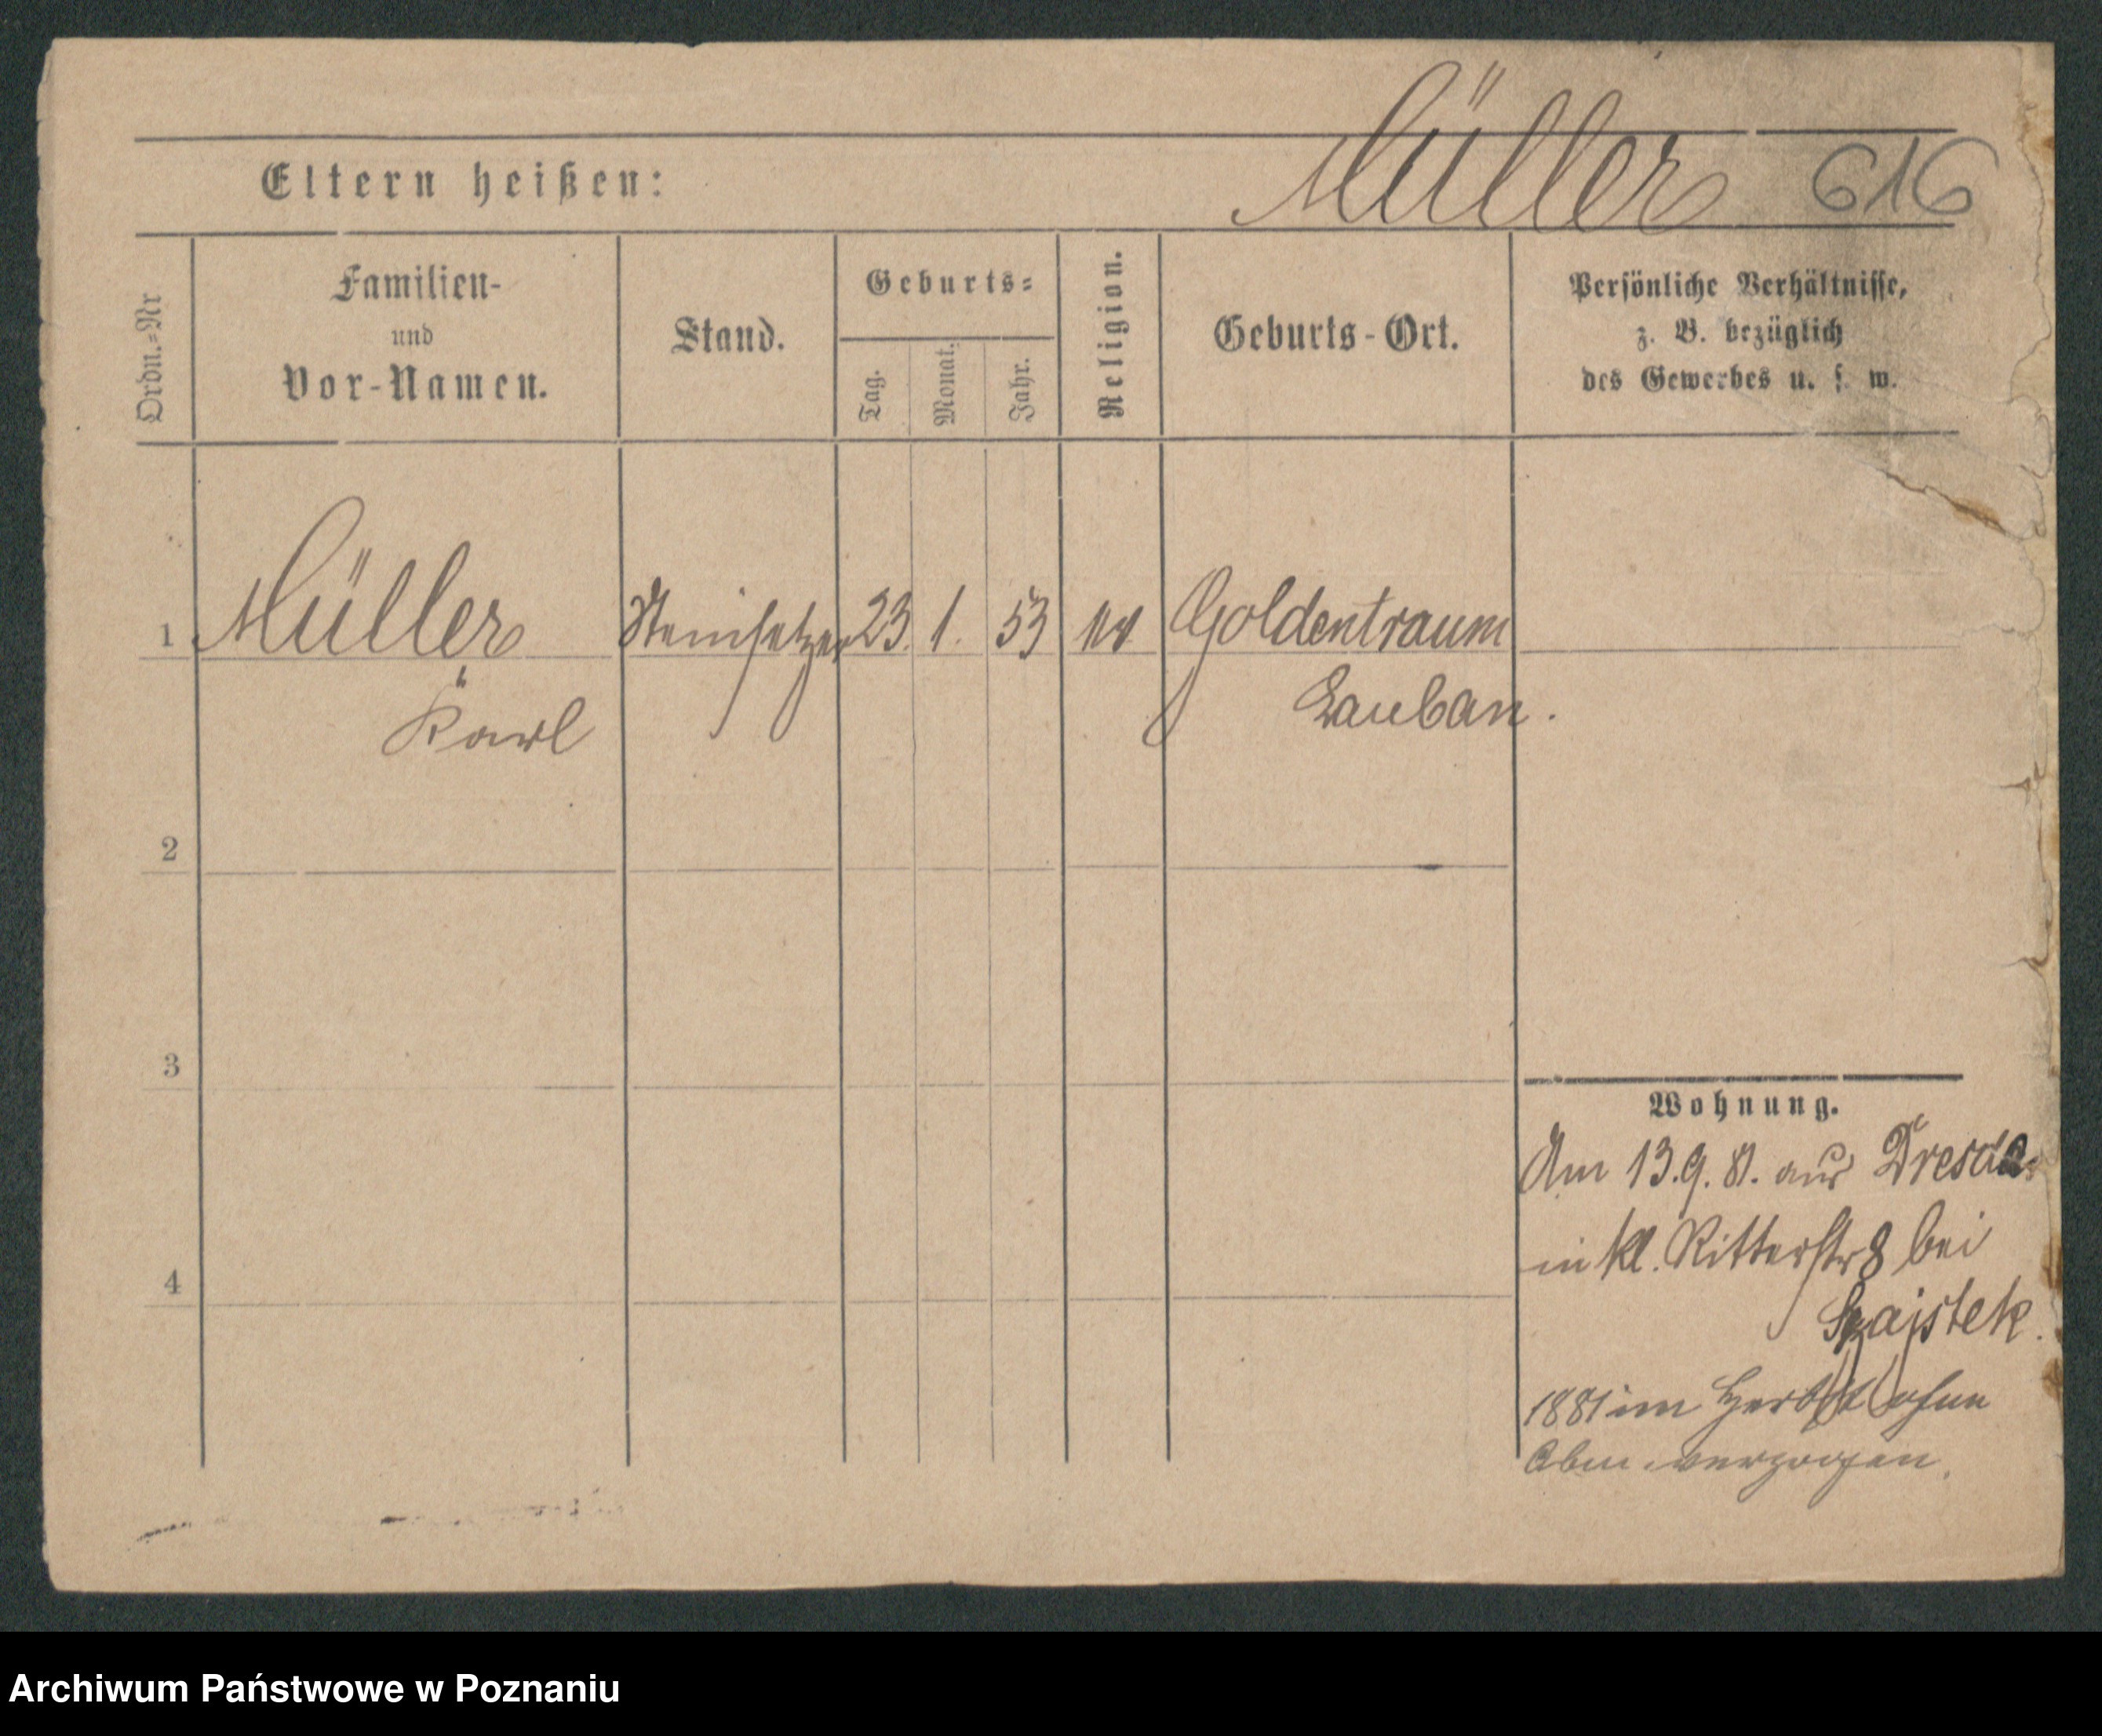 Müller 616
Eltern heißen:
Ordn.=Nr.
Familien-
und
Vor-Namen.
Stand.
Geburts=
Tag.
Monat.
Jahr.
Religion.
Geburts-Ort.
Persönliche Verhältnisse,
z. B. bezüglich
des Gewerbes u. s. w.
1 Müller Steinsetzer 23. 1. 53 Goldentraum
Karl Lauban.
2
3
4
Wohnung.
Am 13.9.81. aus Dresden
in kl. Ritterstr 8 bei
Szajstek.
1881 im Herbst ohne
Abm. verzogen.
Archiwum Państwowe w Poznaniu